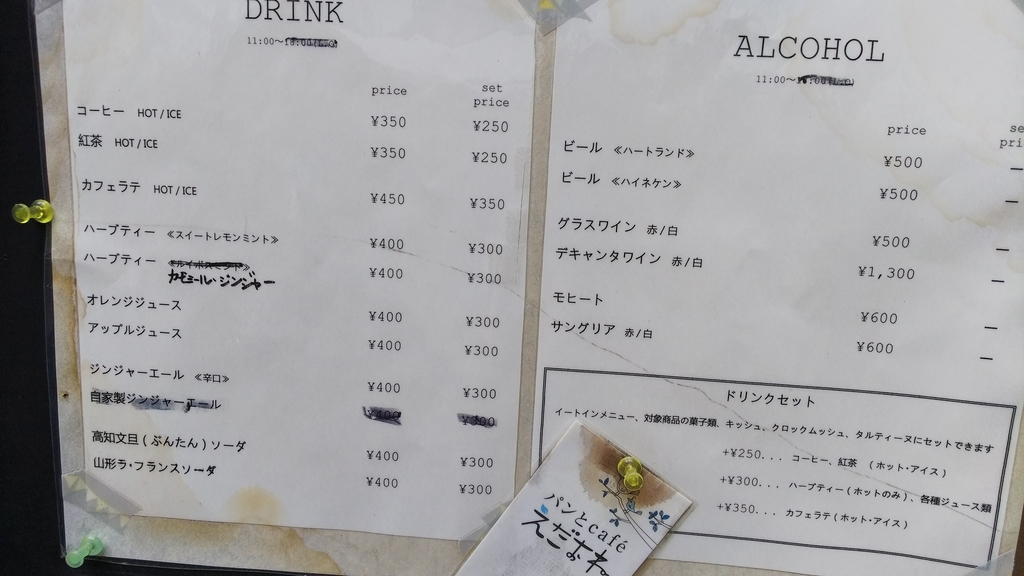 DRINK
11:00～
price set price
コーヒー HOT/ICE ¥350 ¥250
紅茶 HOT/ICE ¥350 ¥250
カフェラテ HOT/ICE ¥450 ¥350
ハーブティー ≪スイートレモンミント≫ ¥400 ¥300
ハーブティー ¥400 ¥300
カモミール・ジンジャー
オレンジジュース ¥400 ¥300
アップルジュース ¥400 ¥300
ジンジャーエール ≪辛口≫ ¥400 ¥300
自家製ジンジャーエール ¥400 ¥300
高知文旦(ぶんたん)ソーダ ¥400 ¥300
山形ラ・フランスソーダ ¥400 ¥300
ALCOHOL
11:00～
price se
pri
ビール ≪ハートランド≫ ¥500 —
ビール ≪ハイネケン≫ ¥500 —
グラスワイン 赤/白 ¥500 —
デキャンタワイン 赤/白 ¥1,300 —
モヒート ¥600 —
サングリア 赤/白 ¥600 —
ドリンクセット
イートインメニュー、対象商品の菓子類、キッシュ、クロックムッシュ、タルティーヌにセットできます
+¥250... コーヒー、紅茶 (ホット・アイス)
+¥300... ハーブティー(ホットのみ)、各種ジュース類
+¥350... カフェラテ(ホット・アイス)
パンとcafé
えだおね。